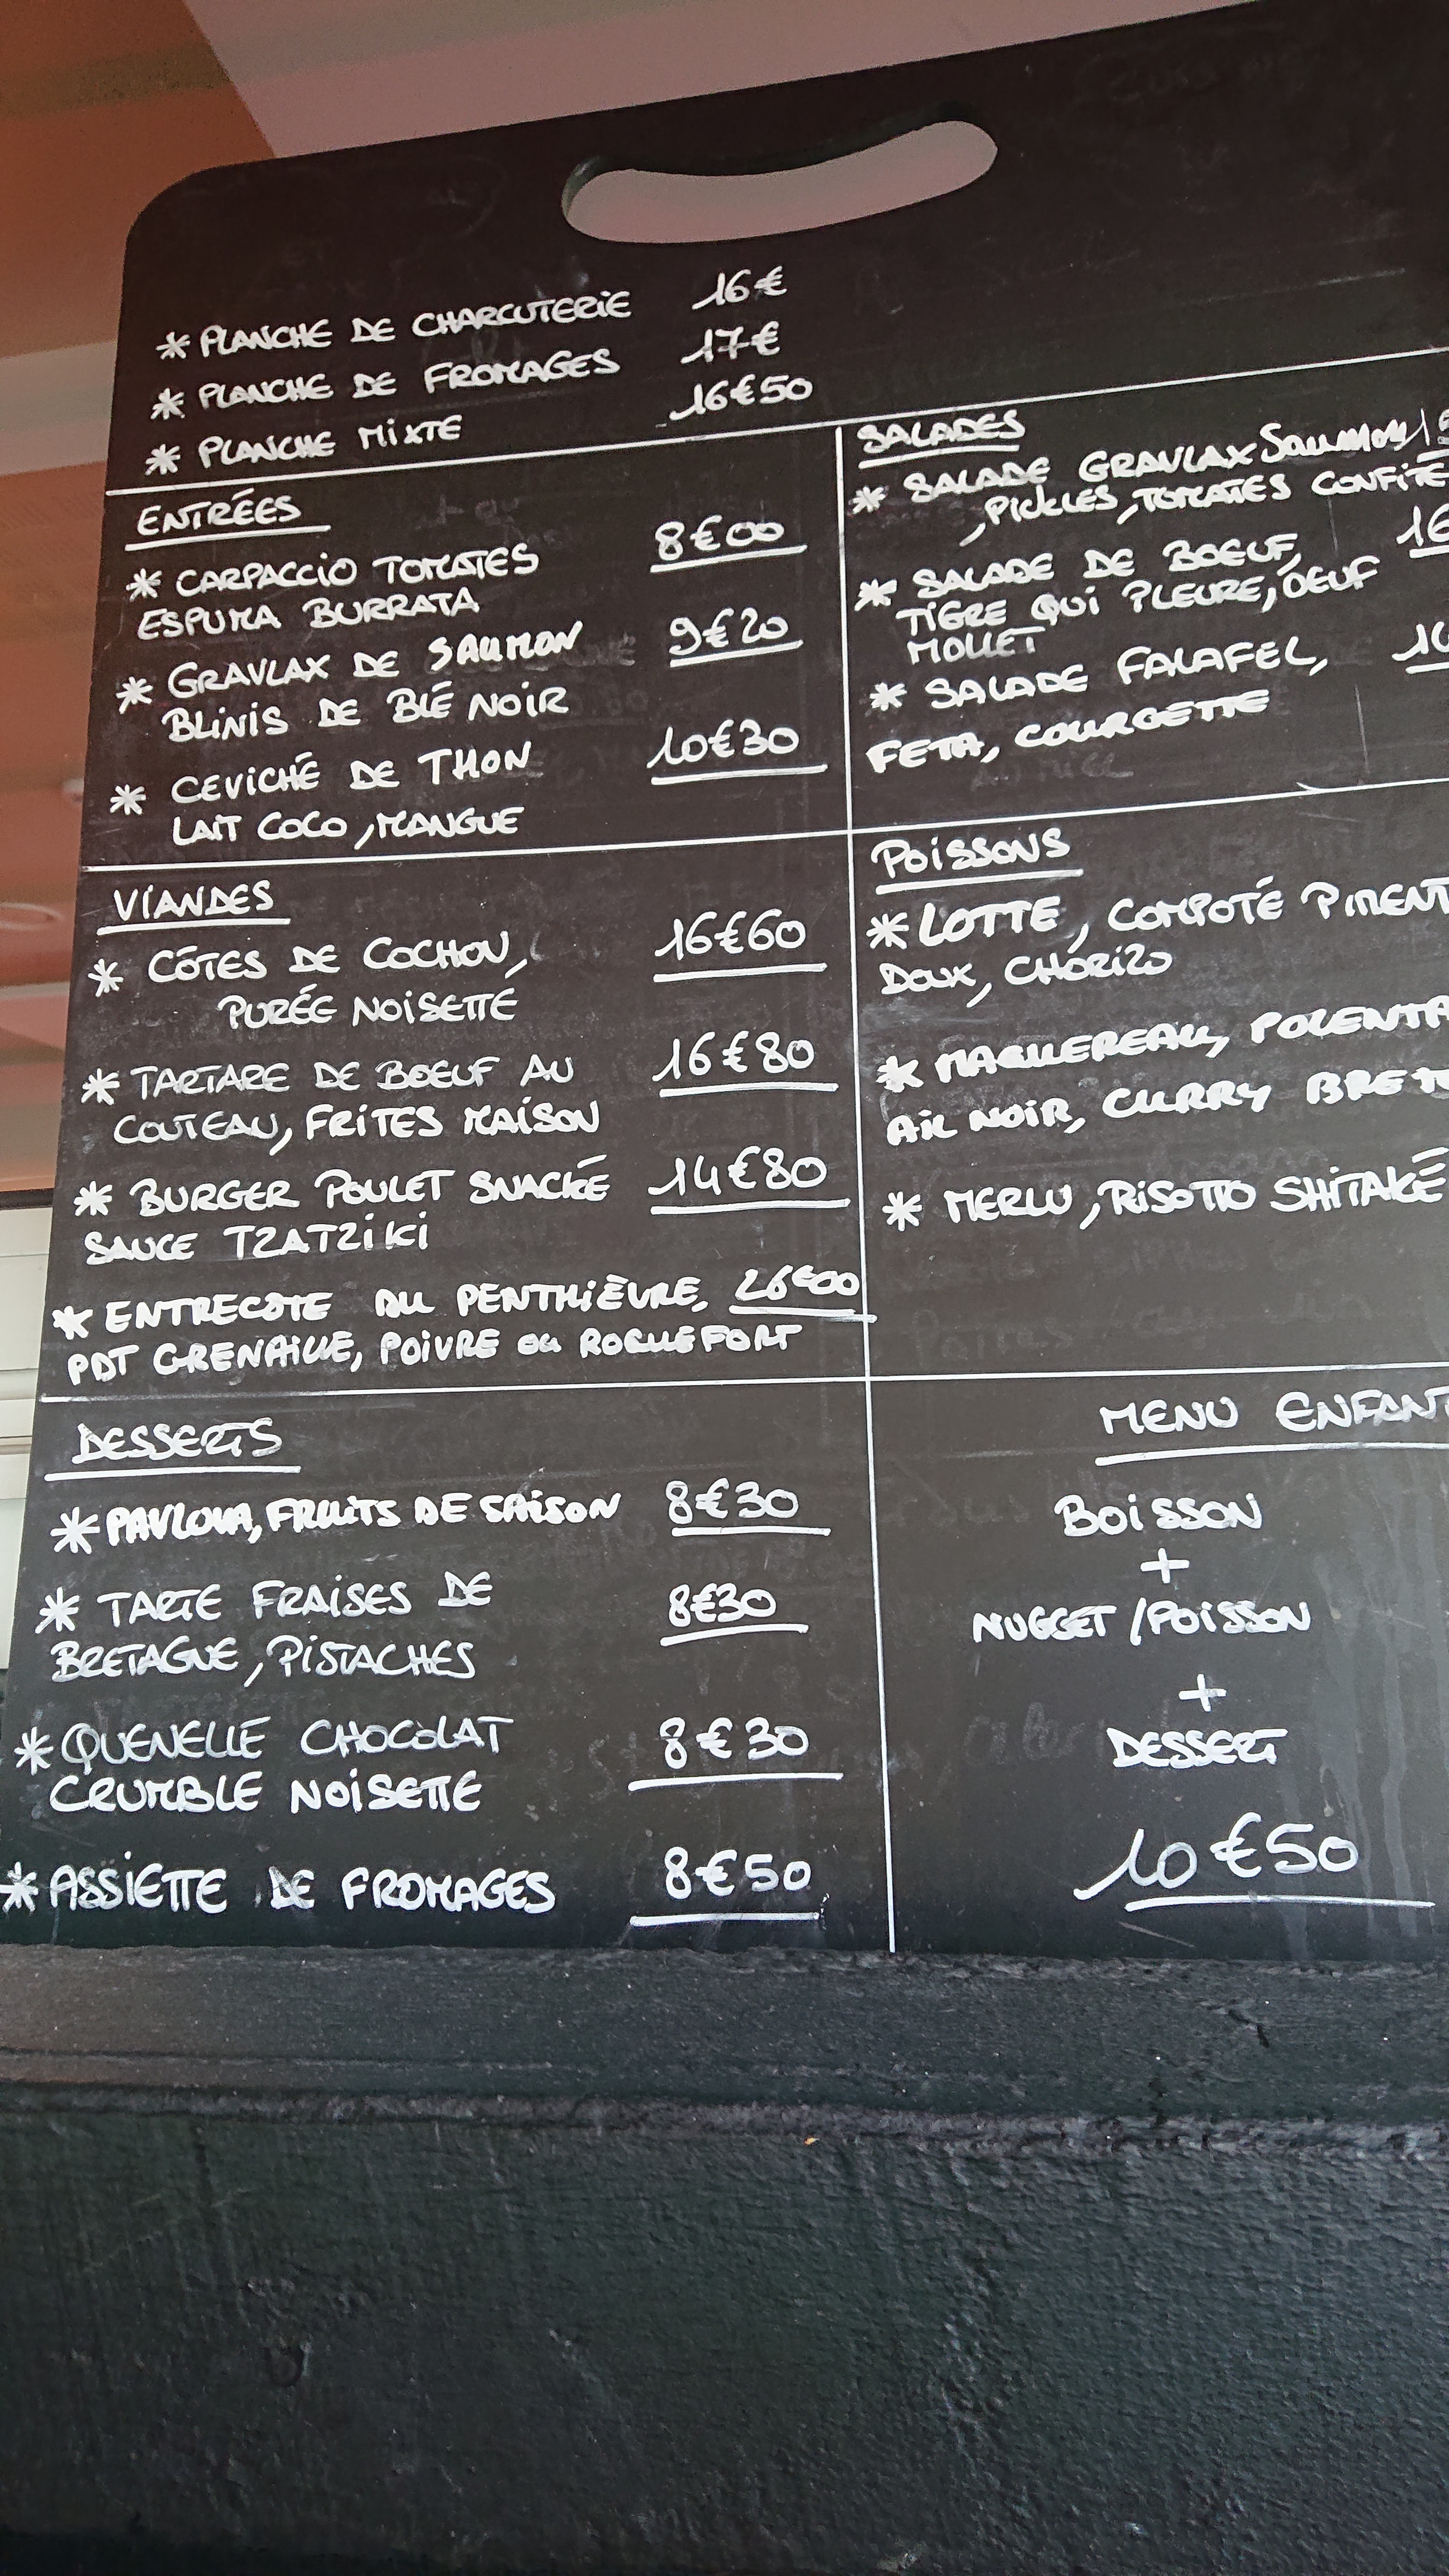 * PLANCHE DE CHARCUTERIE 16€
* PLANCHE DE FROMAGES 17€
* PLANCHE MIXTE 16€50
ENTRÉES
* CARPACCIO TOMATES 8€00
ESPUMA BURRATA
* GRAVLAX DE SAUMON 9€20
BLINIS DE BLÉ NOIR
* CEVICHÉ DE THON 10€30
LAIT COCO, MANGUE
SALADES
* SALADE GRAVLAX SAUMON
, PICKLES, TOMATES
* SALADE DE BOEUF,
TIGRE QUI PLEURE, OEUF
MOLLET
* SALADE FALAFEL,
FETA, COURGETTE
VIANDES
* CÔTES DE COCHON, 16€60
PURÉE NOISETTE
* TARTARE DE BOEUF AU 16€80
COUTEAU, FRITES MAISON
* BURGER POULET SNACKÉ 14€80
SAUCE TZATZIKI
* ENTRECOTE DU PENTHIÈVRE, 26€00
PDT GRENAILLE, POIVRE OU ROQUEFORT
POISSONS
* LOTTE, COMPOTÉ PIMENT
DOUX, CHORIZO
* MAQUEREAU, POLENTA
AIL NOIR, CURRY
* MERLU, RISOTTO SHITAKÉ
DESSERTS
* PAVLOVA, FRUITS DE SAISON 8€30
* TARTE FRAISES DE 8€30
BRETAGNE, PISTACHES
* QUENELLE CHOCOLAT 8€30
CRUMBLE NOISETTE
* ASSIETTE DE FROMAGES 8€50
MENU ENFANT
BOISSON
+
NUGGET / POISSON
+
DESSERT
10€50